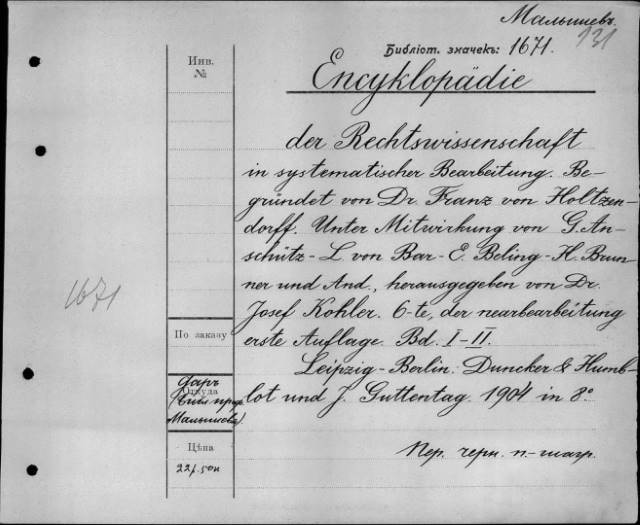 Малышевъ.
131
Библіот. значекъ: 1671.
Encyklopädie
der Rechtswissenschaft
in systematischer Bearbeitung. Be-
gründet von Dr. Franz von Holtzen-
dorff. Unter Mitwirkung von G. An-
schütz - L. von Bar - E. Beling - H. Brun-
ner und And., herausgegeben von Dr.
Josef Kohler. 6-te, der nearbearbeitung
erste Auflage. Bd. I-II.
Leipzig - Berlin: Duncker & Humb-
lot und J. Guttentag. 1904 in 8°
Пер. черн. п.-шагр.
Инв.
№
1671
По заказу
Откуда
Даръ
(библ. проф.
Малышева).
Цѣна
22 р. 50 к